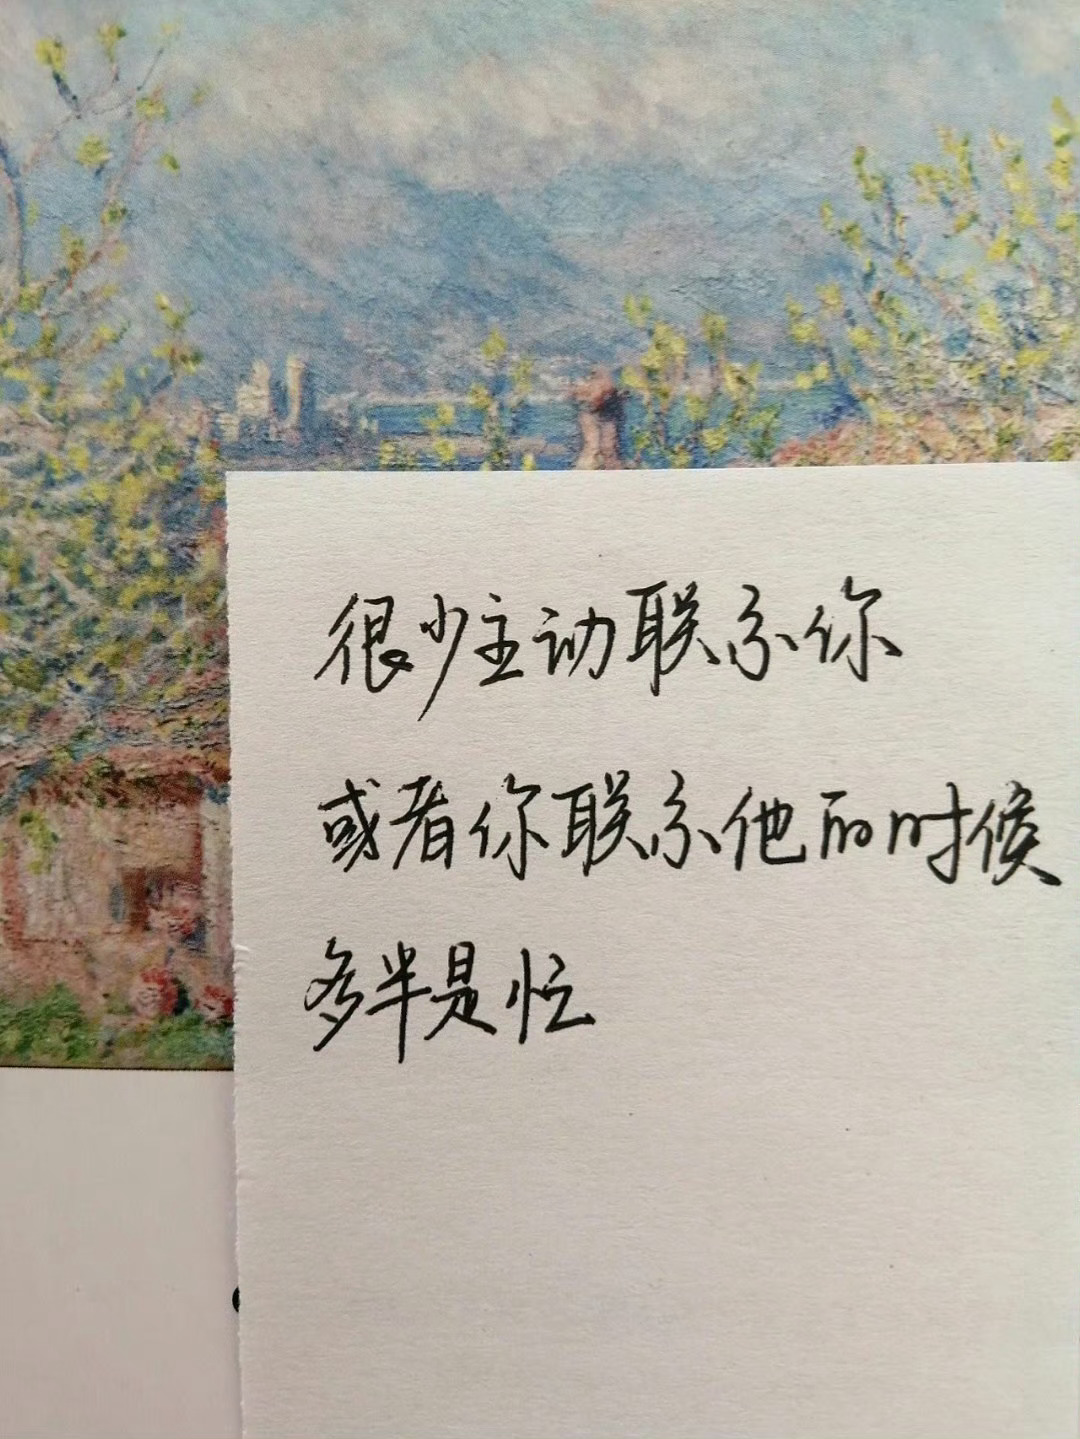 很少主动联系你
或者你联系他的时候
多半是忙